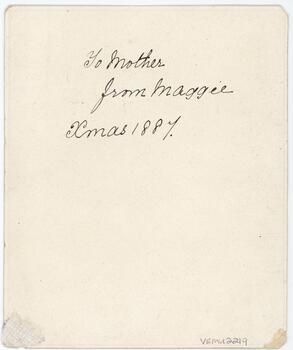 To Mother
from Maggie
Xmas 1887.
VEMU2219